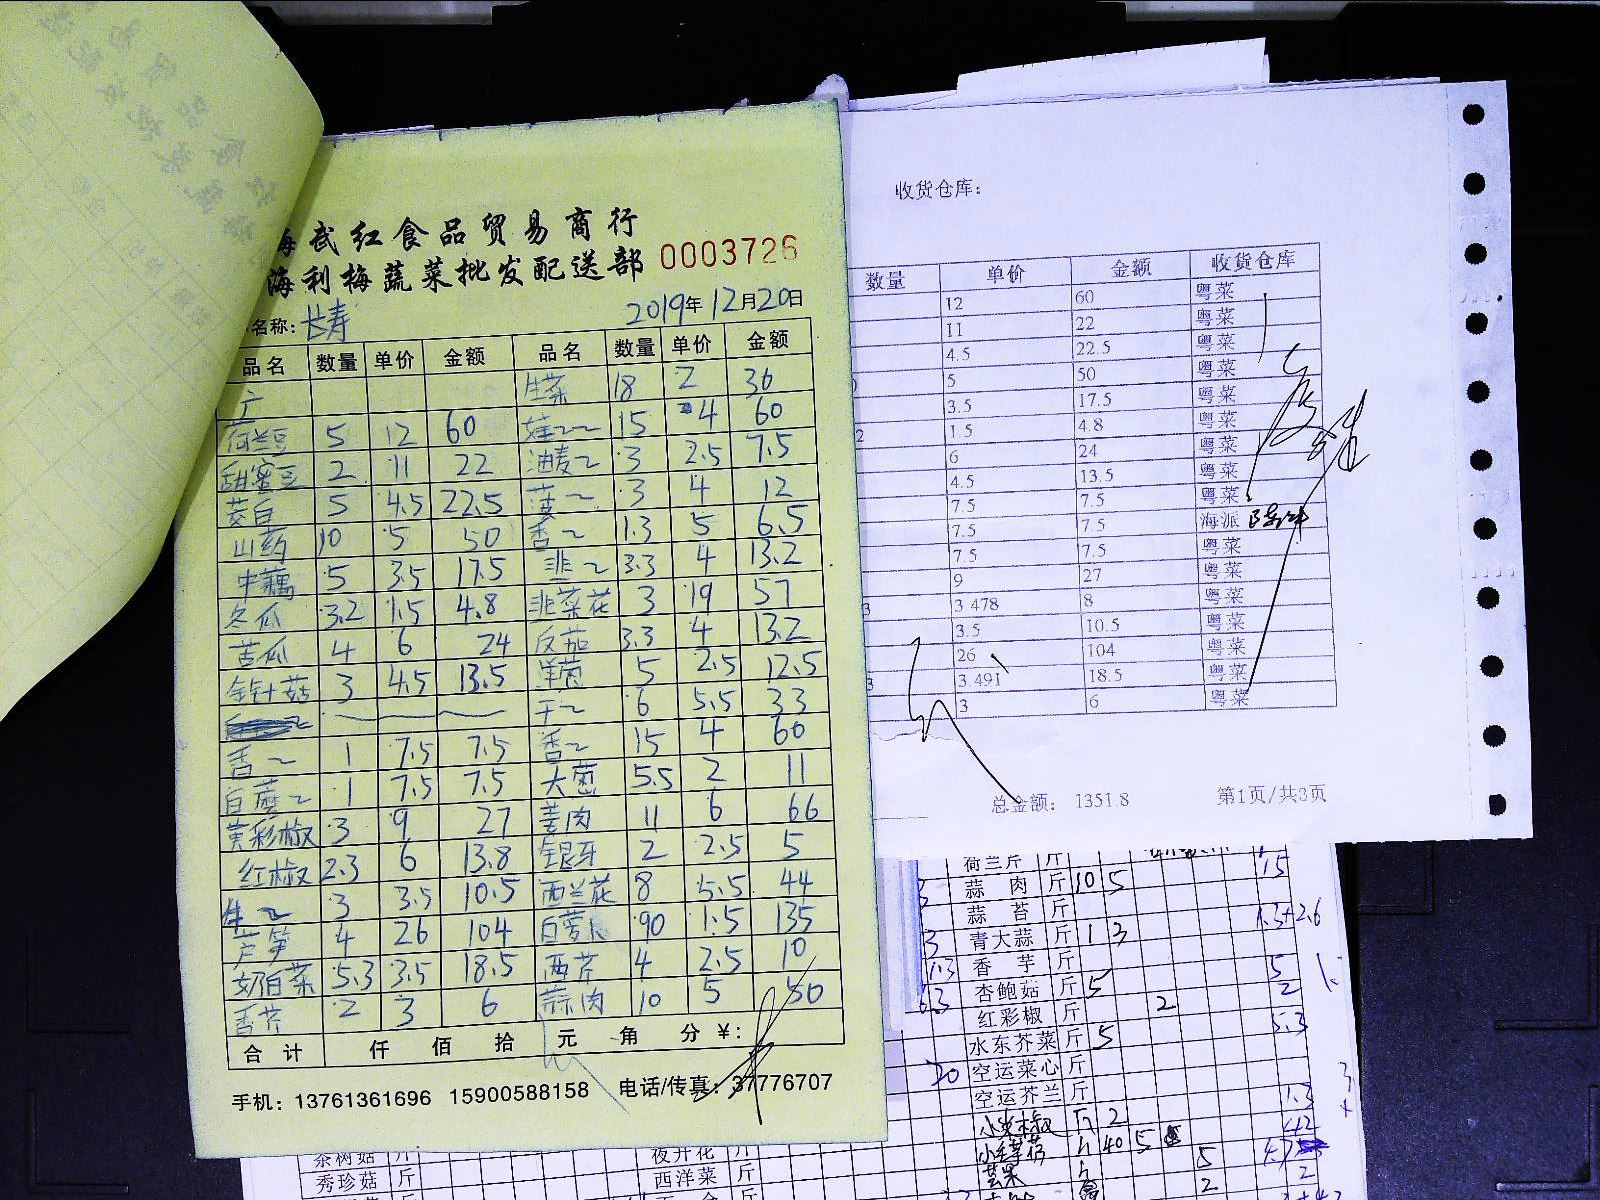 海武红食品贸易商行
海利梅蔬菜批发配送部 0003726
名称: 长寿 2019年12月20日
品名 数量 单价 金额 品名 数量 单价 金额
生菜 18 2 36
荷兰豆 5 12 60 娃~~ 15 4 60
甜蜜豆 2 11 22 油麦~ 3 2.5 7.5
茭白 5 4.5 22.5 菠~ 3 4 12
山药 10 5 50 香~ 1.3 5 6.5
中藕 5 3.5 17.5 韭~ 3.3 4 13.2
冬瓜 3.2 1.5 4.8 韭菜花 3 19 57
苦瓜 4 6 24 反茄 3.3 4 13.2
金针菇 3 4.5 13.5 洋葱 5 2.5 12.5
干~ 6 5.5 33
香~ 1 7.5 7.5 香~ 15 4 60
白蘑~ 1 7.5 7.5 大葱 5.5 2 11
黄彩椒 3 9 27 姜肉 11 6 66
红椒 2.3 6 13.8 银牙 2 2.5 5
生~ 3 3.5 10.5 西兰花 8 5.5 44
芦笋 4 26 104 白萝卜 90 1.5 135
奶白菜 5.3 3.5 18.5 西芹 4 2.5 10
香芹 2 3 6 蒜肉 10 5 50
合计 仟 佰 拾 元 角 分 ¥:
手机: 13761361696 15900588158 电话/传真: 37776707
收货仓库:
数量 单价 金额 收货仓库
12 60 粤菜
11 22 粤菜
4.5 22.5 粤菜
5 50 粤菜
3.5 17.5 粤菜
2 1.5 4.8 粤菜
6 24 粤菜
4.5 13.5 粤菜
7.5 7.5 粤菜
7.5 7.5 海派
7.5 7.5 粤菜
9 27 粤菜
3 3.478 8 粤菜
3.5 10.5 粤菜
26 104 粤菜
3 3.491 18.5 粤菜
3 6 粤菜
总金额: 1351.8 第1页/共3页
荷兰斤 斤 15
蒜肉 斤 10 5
蒜苔 斤 1.3+2.6
3 青大蒜 斤 1 3
1.3 香芋 斤 5
6.3 杏鲍菇 斤 5 2
红彩椒 斤 2 5.3
水东芥菜 斤 5
20 空运菜心 斤
空运芥兰 斤 1.3
小米椒 斤 2 42
40 5
芸果 5 2
茶树菇 斤 夜开花 斤
秀珍菇 斤 西洋菜 斤 2